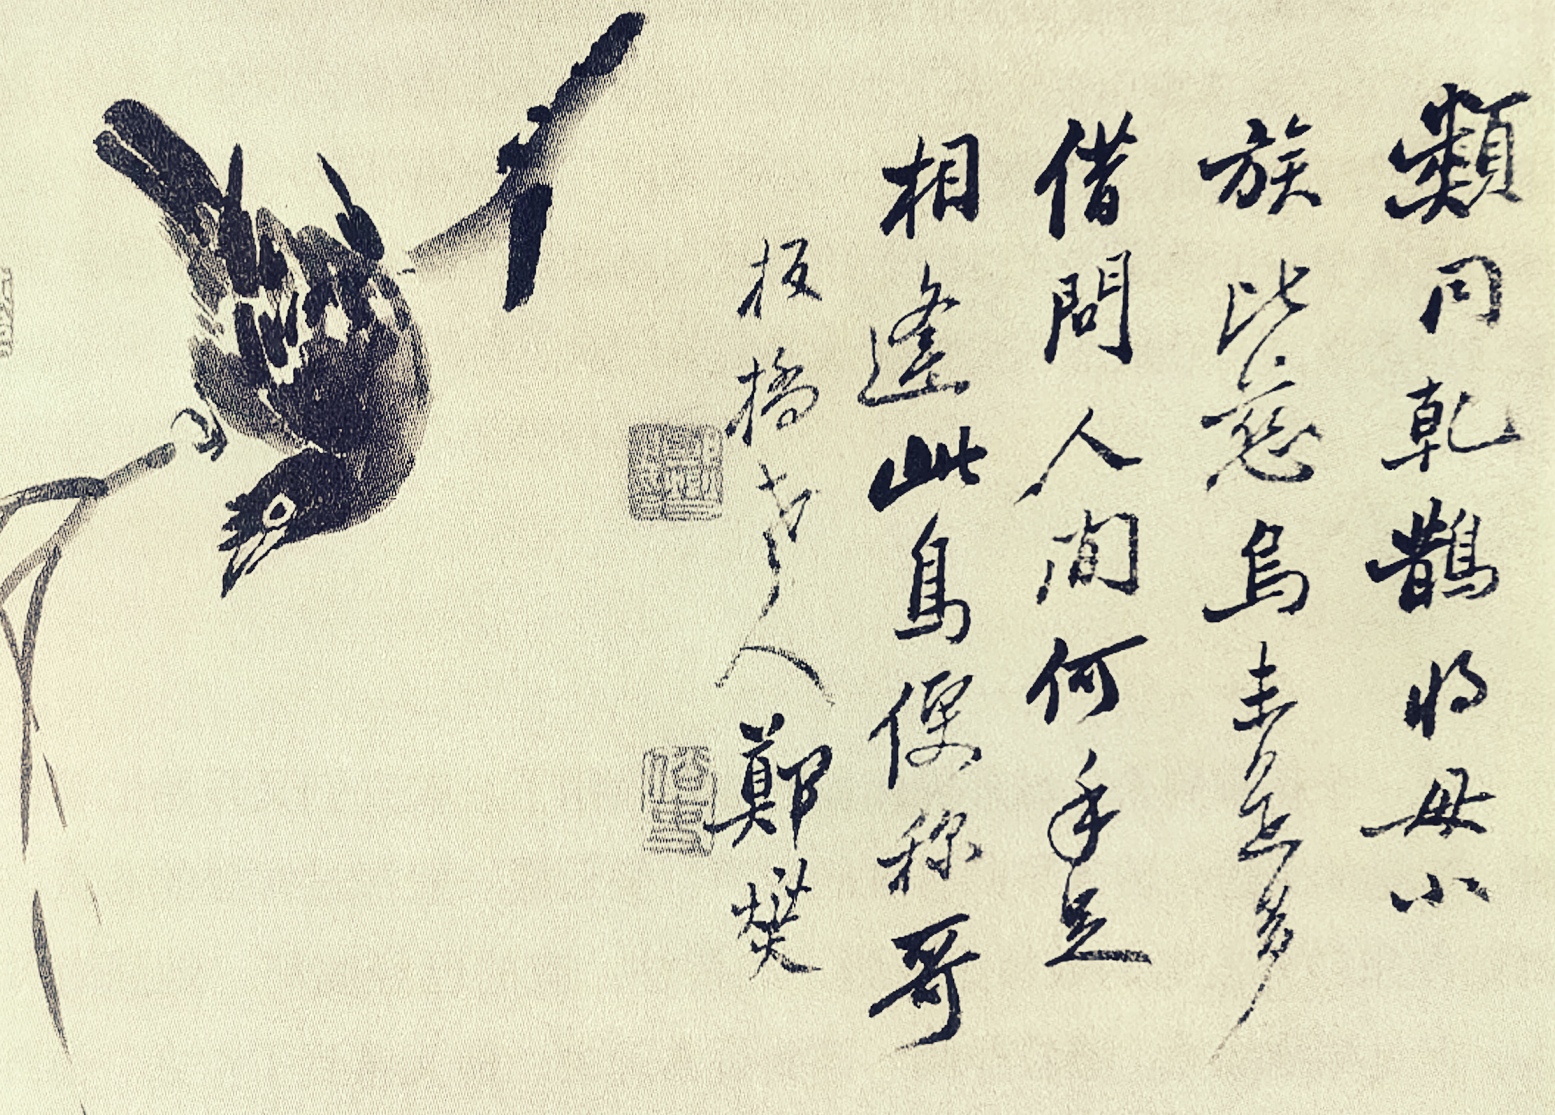 類同乾鵲将毋小
族比慈烏未是多
借問人間何手足
相逢此鳥便称哥
板橋老人鄭燮
俗吏